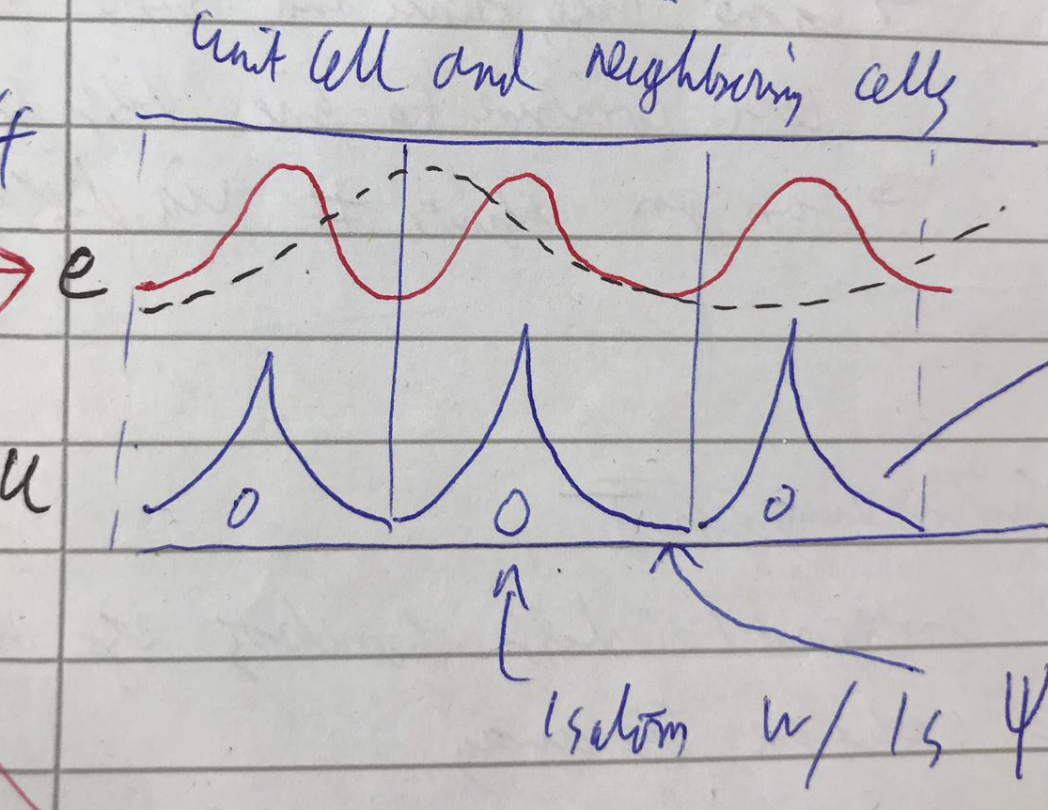 unit cell and neighboring cells
f
e
u
0 0 0
1s atom w/ 1s Ψ